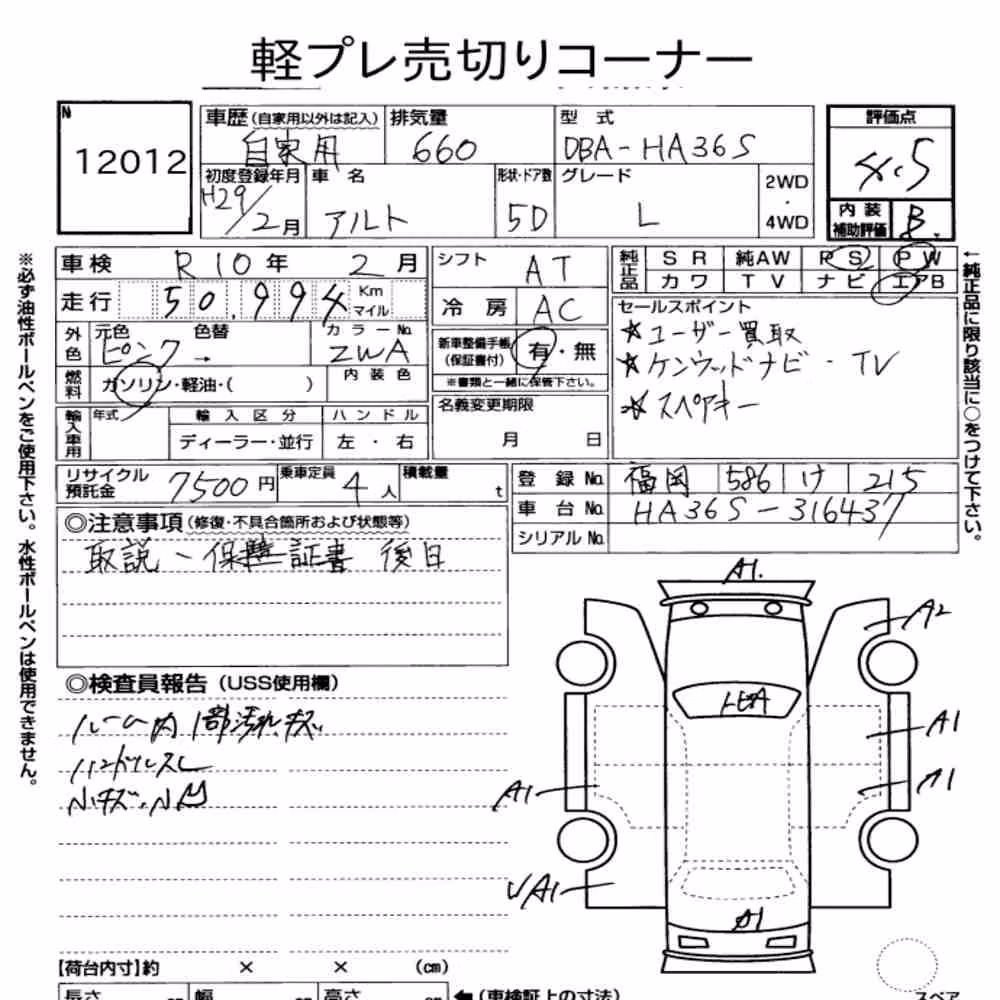 軽プレ売切りコーナー
N
12012
車歴 (自家用以外は記入)
自家用
排気量
660
型 式
DBA-HA36S
評価点
4.5
初度登録年月
H29/2月
車 名
アルト
形状・ドア数
5D
グレード
L
2WD
・
4WD
内 装
補助評価
B
車 検 R10 年 2 月
シフト AT
純正品
SR 純AW PS PW
カワ TV ナビ エアB
走 行 50,994 Km
マイル
冷 房 AC
セールスポイント
★ユーザー買取
★ケンウッドナビ・TV
★スペアキー
外色
元色 色替
ピンク →
カラーNo.
ZWA
新車整備手帳
(保証書付)
有・無
※書類と一緒に保管下さい。
燃料
ガソリン・軽油・( )
内 装 色
輸入車用
年式
輸 入 区 分
ハ ン ド ル
ディーラー・並行
左 ・ 右
名義変更期限
月 日
リサイクル
預託金
7500円
乗車定員
4人
積載量
t
登 録 No. 福岡 586 け 215
車 台 No. HA36S-316437
シリアル No.
◎注意事項 (修復・不具合箇所および状態等)
取説、保証書 後日
◎検査員報告 (USS使用欄)
ルーム内1部汚れ、キズ
ハンドルスレ
小キズ、小凹
A1.
A2
A1
A1
A1
A1
【荷台内寸】約 × × (cm)
長さ cm
幅 cm
高さ cm
←(車検証上の寸法)
スペア
※必ず油性ボールペンをご使用下さい。水性ボールペンは使用できません。
←純正品に限り該当に○をつけて下さい。